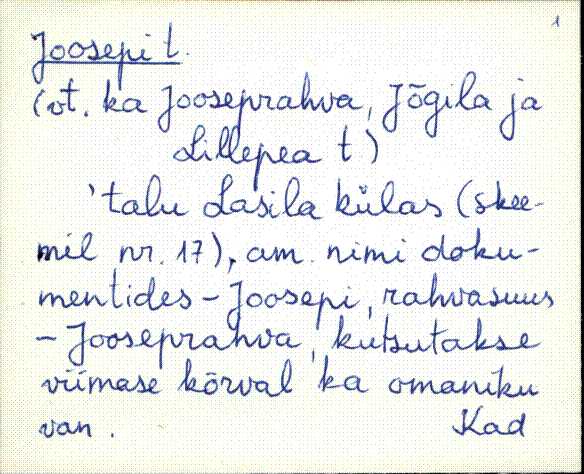 1
Joosepi t.
(vt. ka Jooseprahva, Jõgila ja
Lillepea t)
'talu Lasila külas (skee-
mil nr. 17), am. nimi doku-
mentides - Joosepi, rahvasuus
- Jooseprahva, kutsutakse
viimase kõrval ka omaniku
van. Kad